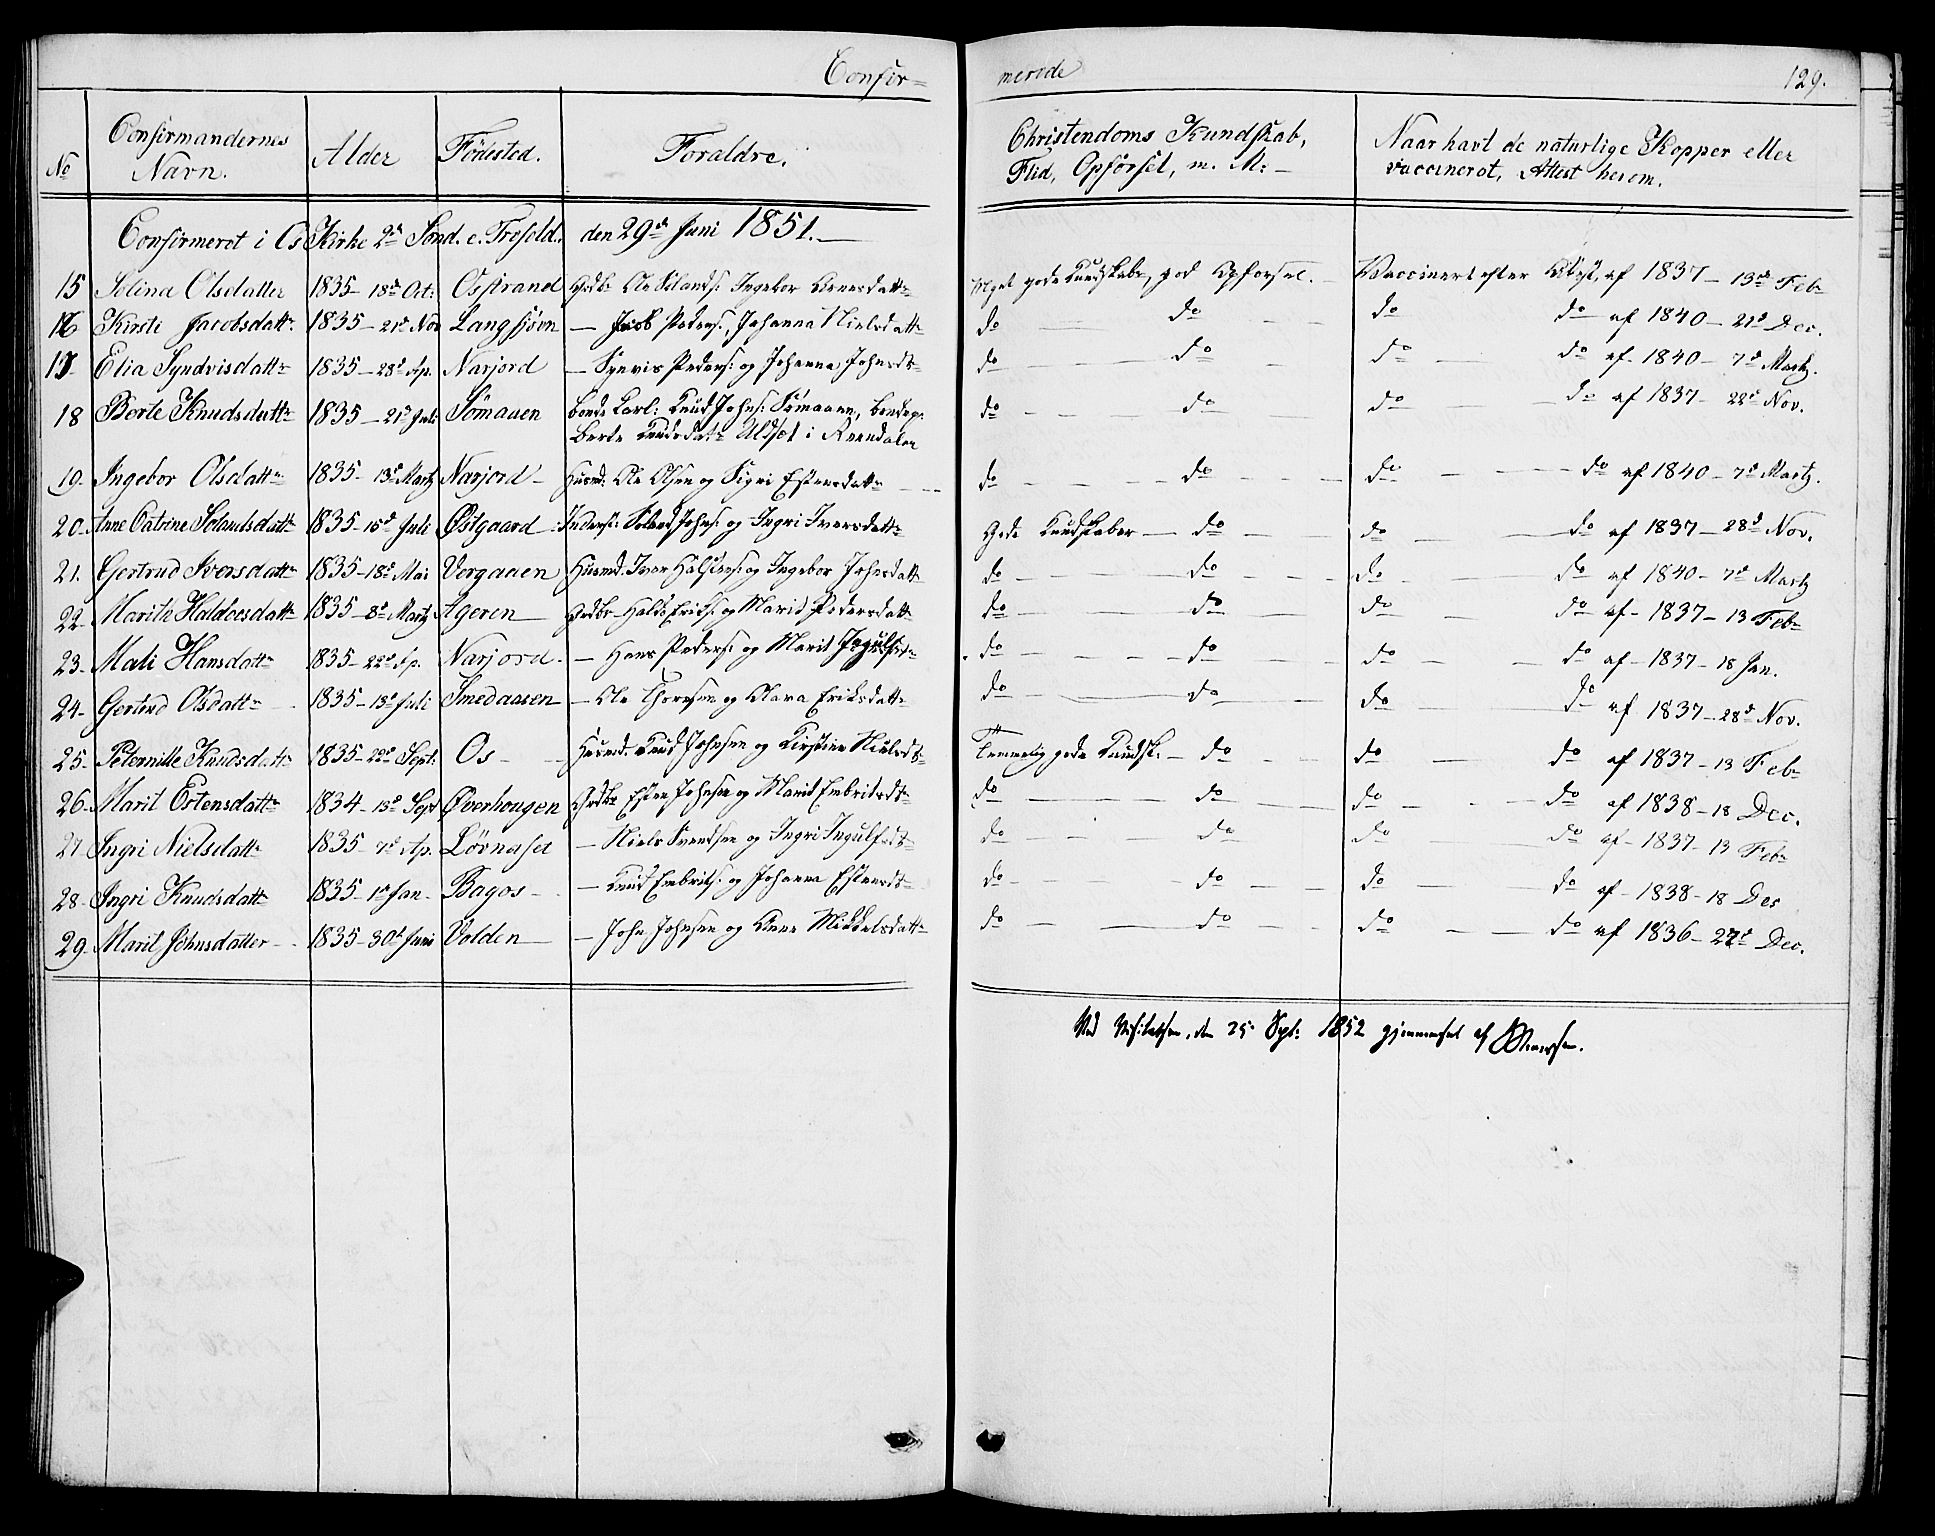 Confir= merede 129.
No Confirmandernes Navn. Alder Födested. Foraldre. Christendoms Kundskab, Flid, Opförsel, m. M: — Naar havt de naturlige Kopper eller vaccineret, Attest herom.
Confirmeret i Os Kirke 2den Sönd. e. Trefold. den 29de Juni 1851. —
15 Olsdatter 1835 – 18de Oct: Osstrand Ingebor Meget gode Kundskabr, god Opforsel. — Vaccinert efter Attest, af 1837 – 13de Feb
16 Kirsti Jacobsdattr 1835 – 21de Nov Langsjövn — Jacob Peders:, Johanna Nielsdattr do — do — do do af 1840 – 21de Dec.
17 Elia Syndvisdattr 1835 – 28de Ap. Narjord — Synvis Peders: og Johanna Johnsdtr do — do — do — do af 1840 – 7de Martz.
18 Borte Knudsdattr 1835 – 21de Juli Sömaaen Knud Johns: Sömaaen,
Knudsdatr Uldset i Reendalen do — do — do — do af 1837 – 22de Nov.
19. Ingebor Olsdattr 1835 – 13de Martz Narjord – Husmd: Ole Olsen og Sigri Estensdattr do — do — do — do af 1840 – 7de Martz.
20. Anne Catrine 1835 – 15de Juli Østgaard Johns: og Ingri Iversdattr Gode Kundskaber — do — do — do af 1837 – 28de Nov.
21. Gertrud Iversdattr 1835 – 18de Mai Vergaaen Husmd: Iver Halstens: og Ingebor Johnsdattr do — do — do — do af 1840 – 7de Martz
22. Marite Haldoesdattr 1835 – 8de Martz Ageren — Grdbr Haldo Eriks: og Marit Pedersdattr do — do — do — do af – 1837 – 13 Feb
23. Mali Hansdattr 1835 – 22de Ap. Narjord. — Hans Peders: og Marit do — do — do — do af – 1837 – 18 Jan.
24. Gertrud Olsdattr 1835 – 13de Juli Smedaasen — Ole Thoresen og Olava Eriksdattr do — do — do — do af 1837 – 28de Nov.
25. Peternille Knudsdattr 1835 – 22de Sept: Os — Husmd: Knud Johnsen og Kirstine Nielsdtr Temmelig gode Kundsk: — do — do — do af 1837 – 13 Feb
26. Marit Estensdattr 1834 – 13de Sept Øverhougen Grdbr Esten Johnsen og Marit Embritsdtr do — do — do — do af 1838 – 18 Dec.
27. Ingri Nielsdattr 1835 – 7de Ap. Lövnaset — Niels Svendsen og Ingri Ingulfsdtr do — do — do — do af – 1837 – 13 Feb
28. Ingri Knudsdattr 1835 – 1de Jan – Bagos — — Knud Embrits: og Johanna Estensdtr do — do — do — do af – 1838 – 18 Des
29. Marit Johnsdatter — 1835 – 30te Juni Volden — — John Johnsen og Anne Mikkelsdattr do — do — do — do af 1836 – 22de Dec.
Ved Visitatsen, den 25. Spt: 1852 gjennemset af